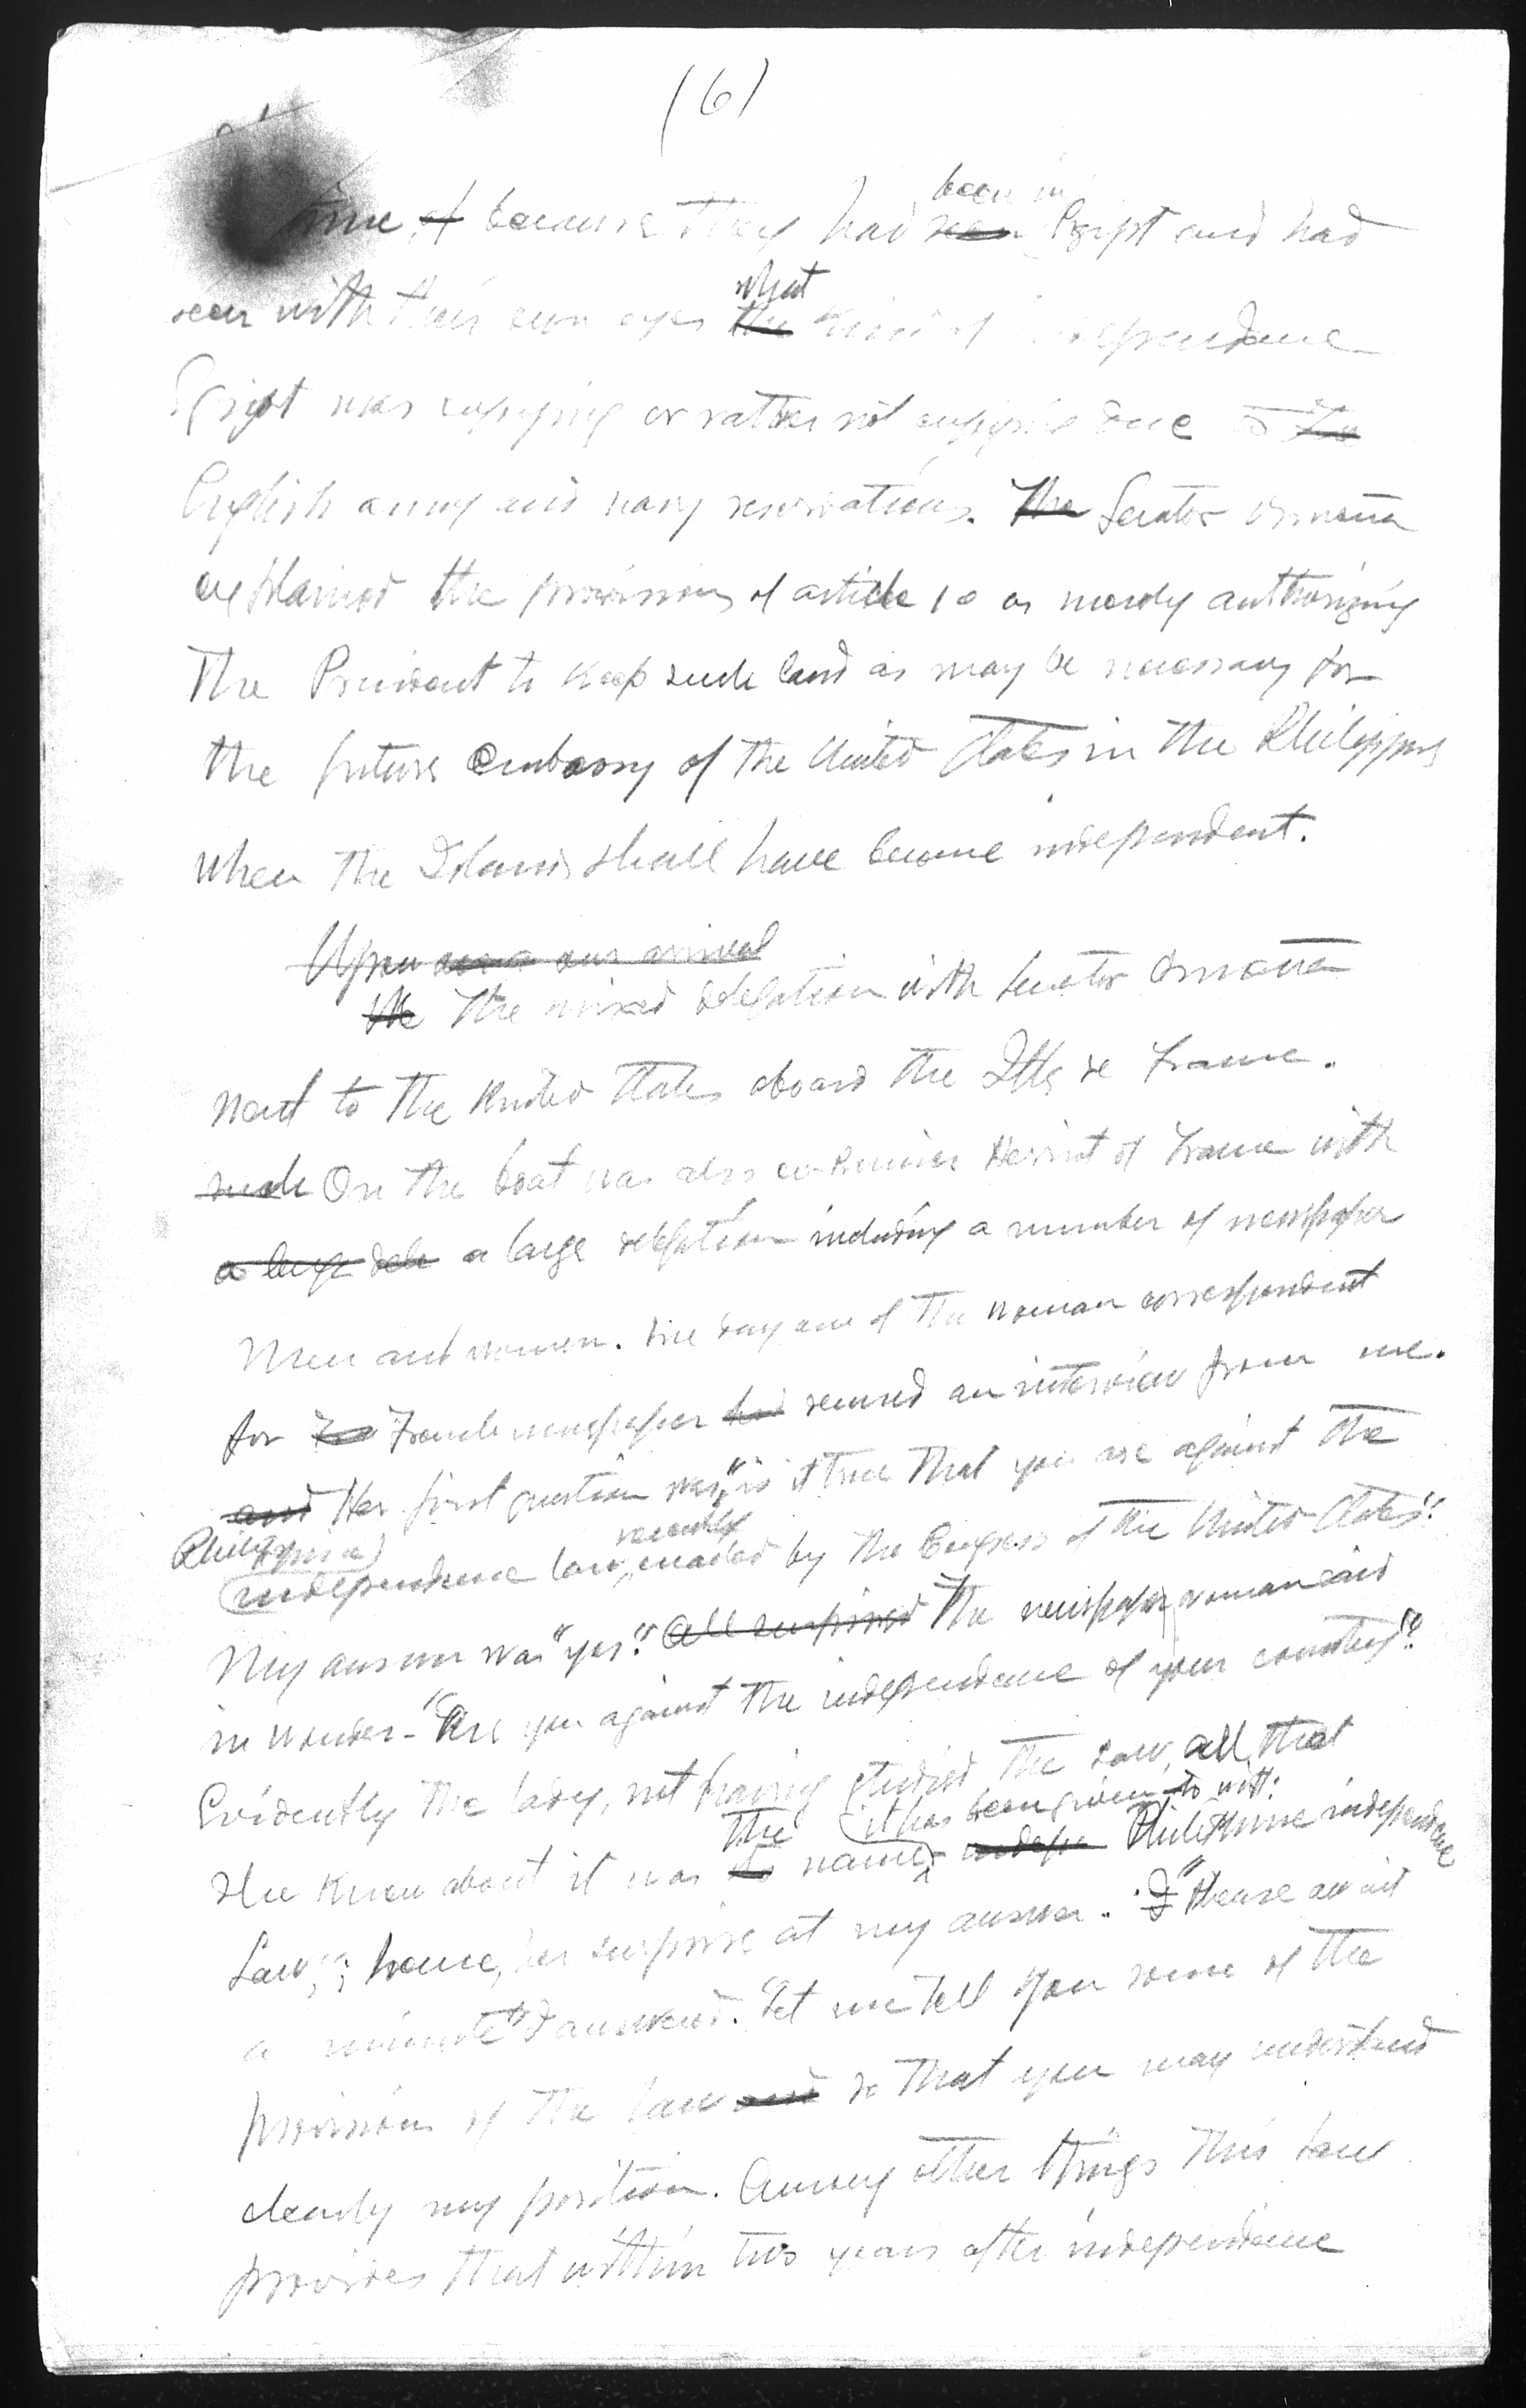 (6)
mine, of because they had seen been in Egipt and had
seen with their own eyes the what kind of independence
Egipt was enjoying or rather not enjoying due to the
English army and navy reservations. The Senator Osmeña
explained the provisions of article 10 as merely authorizing
the President to keep such land as may be necessary for
the future embassy of the United States in the Philippines
when the Islands shall have become independent.
Upon our arrival
We The mixed delegation with Senator Osmeña
went to the United States aboard the Ille de France.
such On the boat was also ex-Premier Herriot of France with
a large dele a large delegation including a number of newspaper
men and women. One day one of the woman correspondent
for Fre French newspaper had secured an interview from me.
and Her first question was, "is it true that you are against the
Philippine
independence law, recently enacted by the Congress of the United States".
My answer was "yes". All surprised The newspaper woman said
in wonder - "Are you against the independence of your country".
Evidently the lady, not having studied the law, all that
she knew about it was its the name it has been given to wit: indepen Philippine independence
Law; hence, her surprise at my answer. I "Please await
a minute" I answered. "Let me tell you some of the
provisions of the law and so that you may understand
clearly my position. Among other things this law
provides that within two years after independence